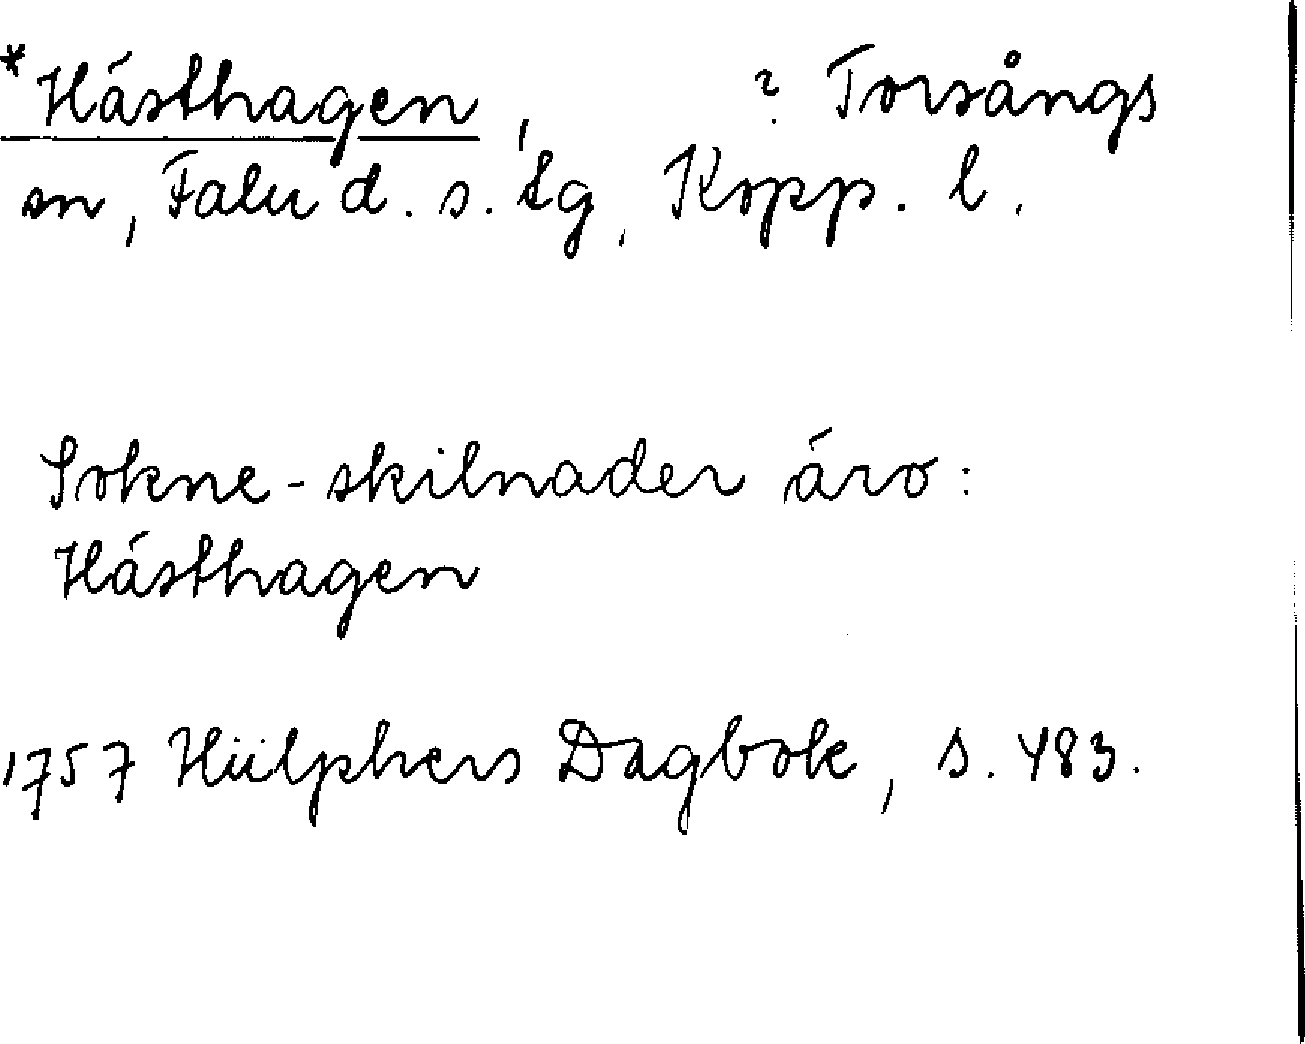 *Hästhagen, ? Torsångs
sn, Falu d. s. tg, Kopp. l.
Sokne-skilnader äro:
Hästhagen
1757 Hülphers Dagbok, s. 483.